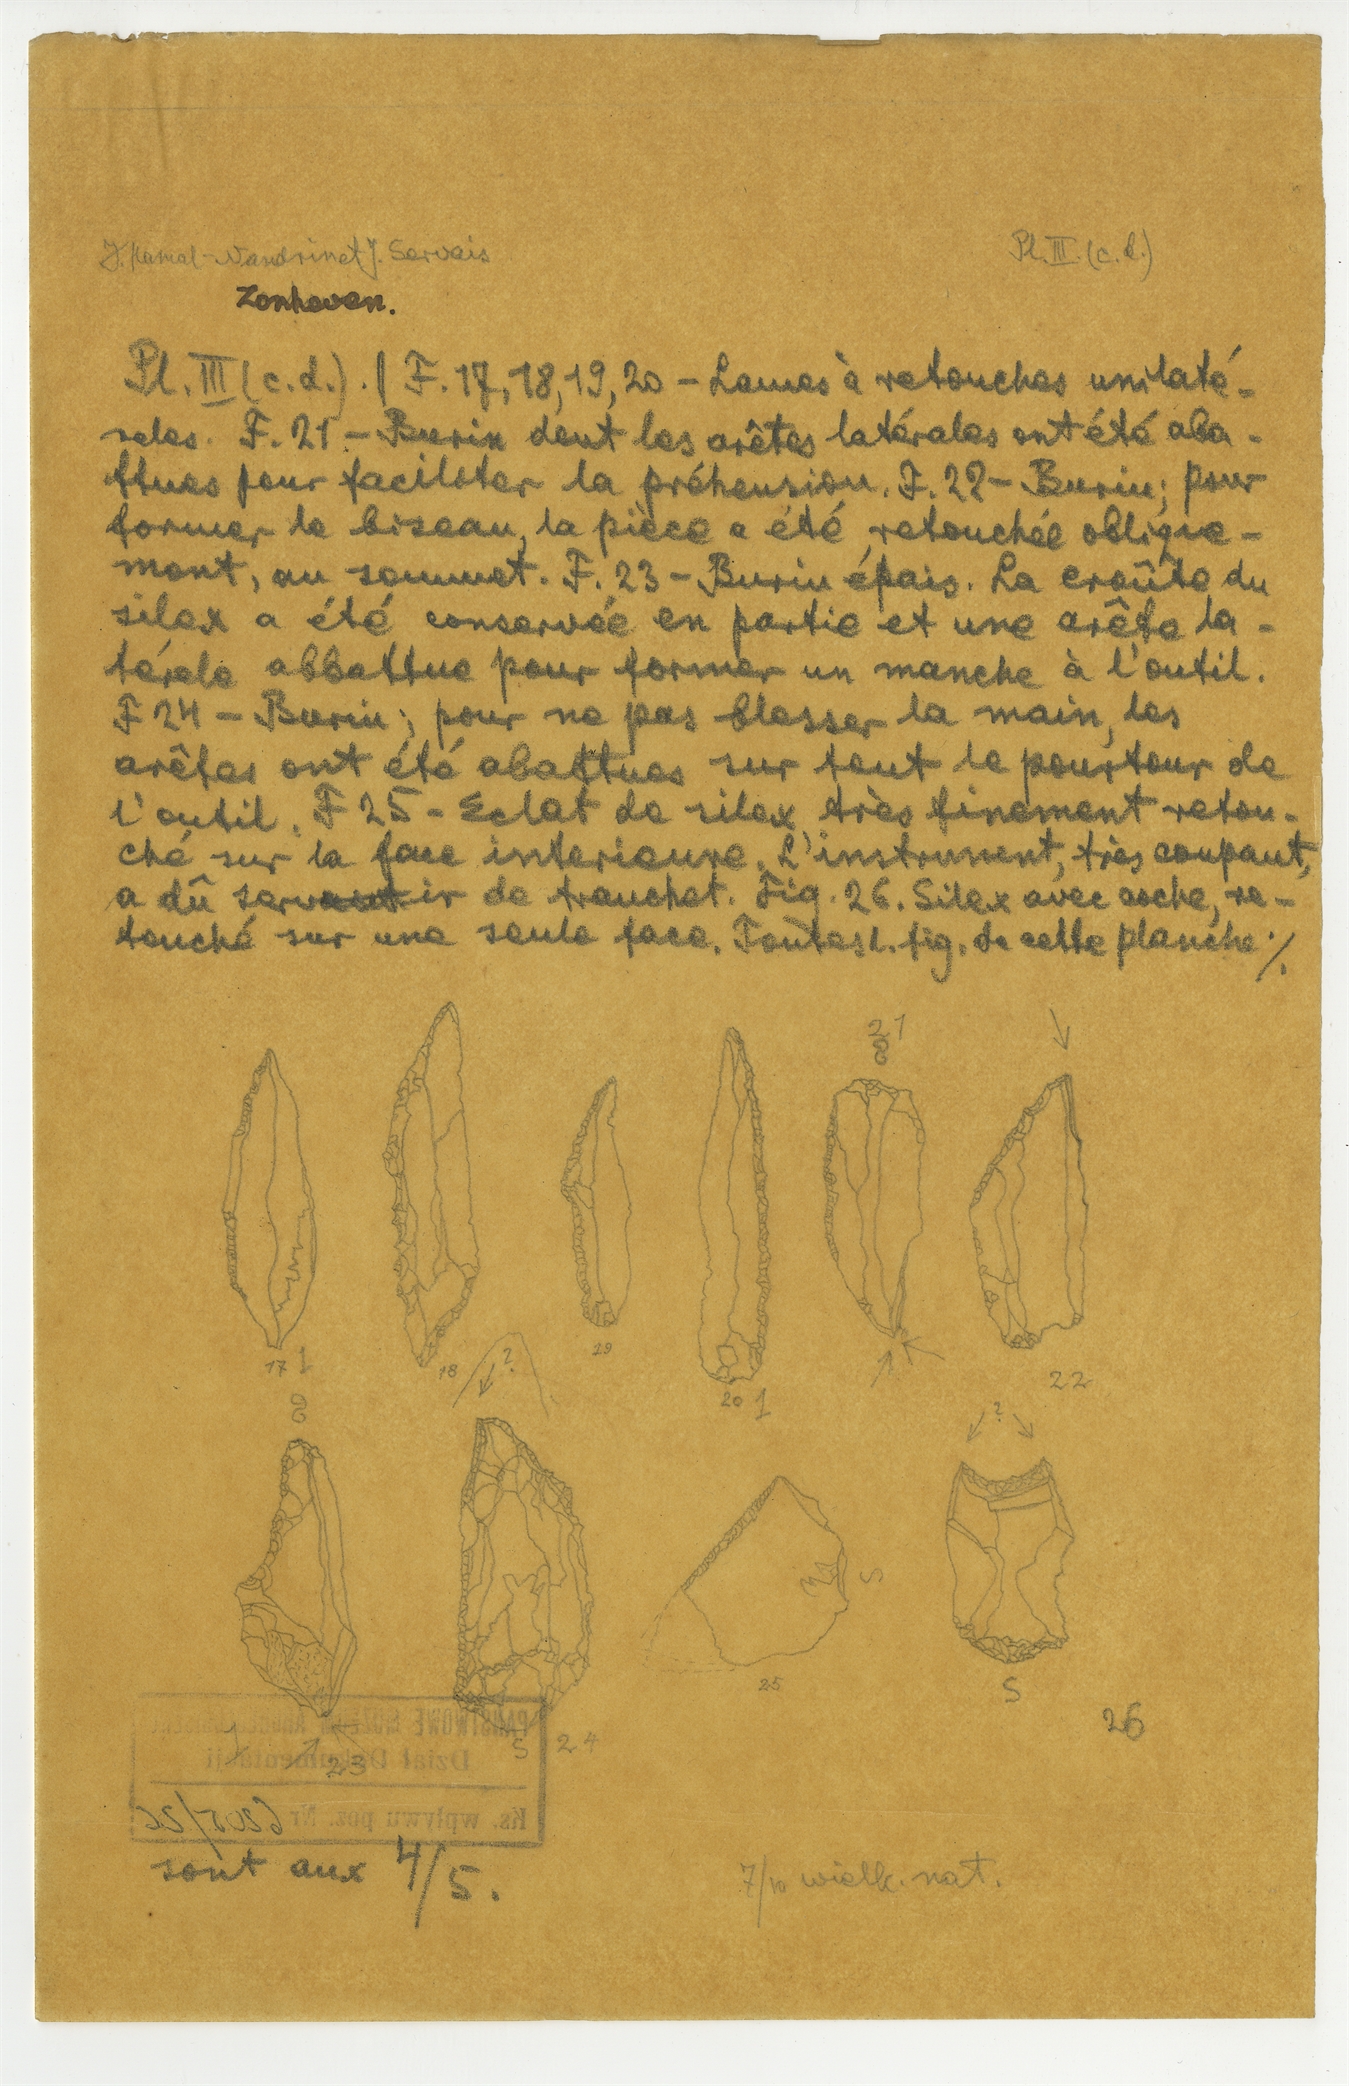 J. Hamal-Nandrinet J. Servais
Pl. III. (c. d.)
Zonhoven.
Pl. III (c. d.). / F. 17, 18, 19, 20 – Lames à retouches unilaté-
rales. F. 21 – Burin dont les arêtes latérales ont été aba-
ttues pour faciliter la préhension. F. 22 – Burin; pour
former le biseau, la pièce a été retouchée oblique-
ment, au sommet. F. 23 – Burin épais. La croûte du
silex a été conservée en partie et une arête la-
térale abbattue pour former un manche à l'outil.
F 24 – Burin; pour ne pas blesser la main, les
arêtes ont été abattues sur tout le pourtour de
l'outil. F 25 - Eclat de silex très finement retou-
ché sur la face interieure. L'instrument, très coupant,
a dû servir de tranchet. Fig. 26. Silex avec coche, re-
touché sur une seule face. Toutes l. fig. de cette planche ./.
21
17 1
18
?
19
20 1
22
?
23
S 24
S
25
S
26
PAŃSTWOWE MUZEUM ARCHEOLOGICZNE
Dział Dokumentacji
Ks. wpływu poz. Nr
sont aux 4/5.
7/10 wielk. nat.